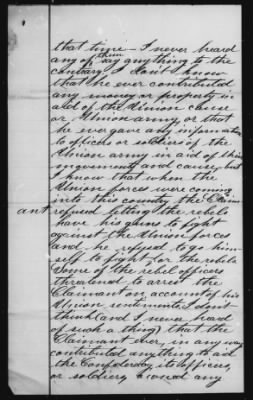 that time - I never heard
any of them say anything to the
contrary I don't know
that he ever contributed
any money or property in
aid of the Union cause
or Union army, or that
he ever gave any information
to officers or soldiers of the
Union army in aid of their
movements and cause, but
I know that when the
Union forces were coming
into this country the Claim
ant refused letting the rebels
have his guns to fight
against the Union forces
and he refused to go him-
self to fight for the rebels.
Some of the rebel officers
threatened to arrest the
Claimant on account of his
Union sentiments I don't
think (and I never heard
of such a thing) that the
Claimant ever, in any way
contributed anything to aid
the Confederacy its officers,
or soldiers, owned any